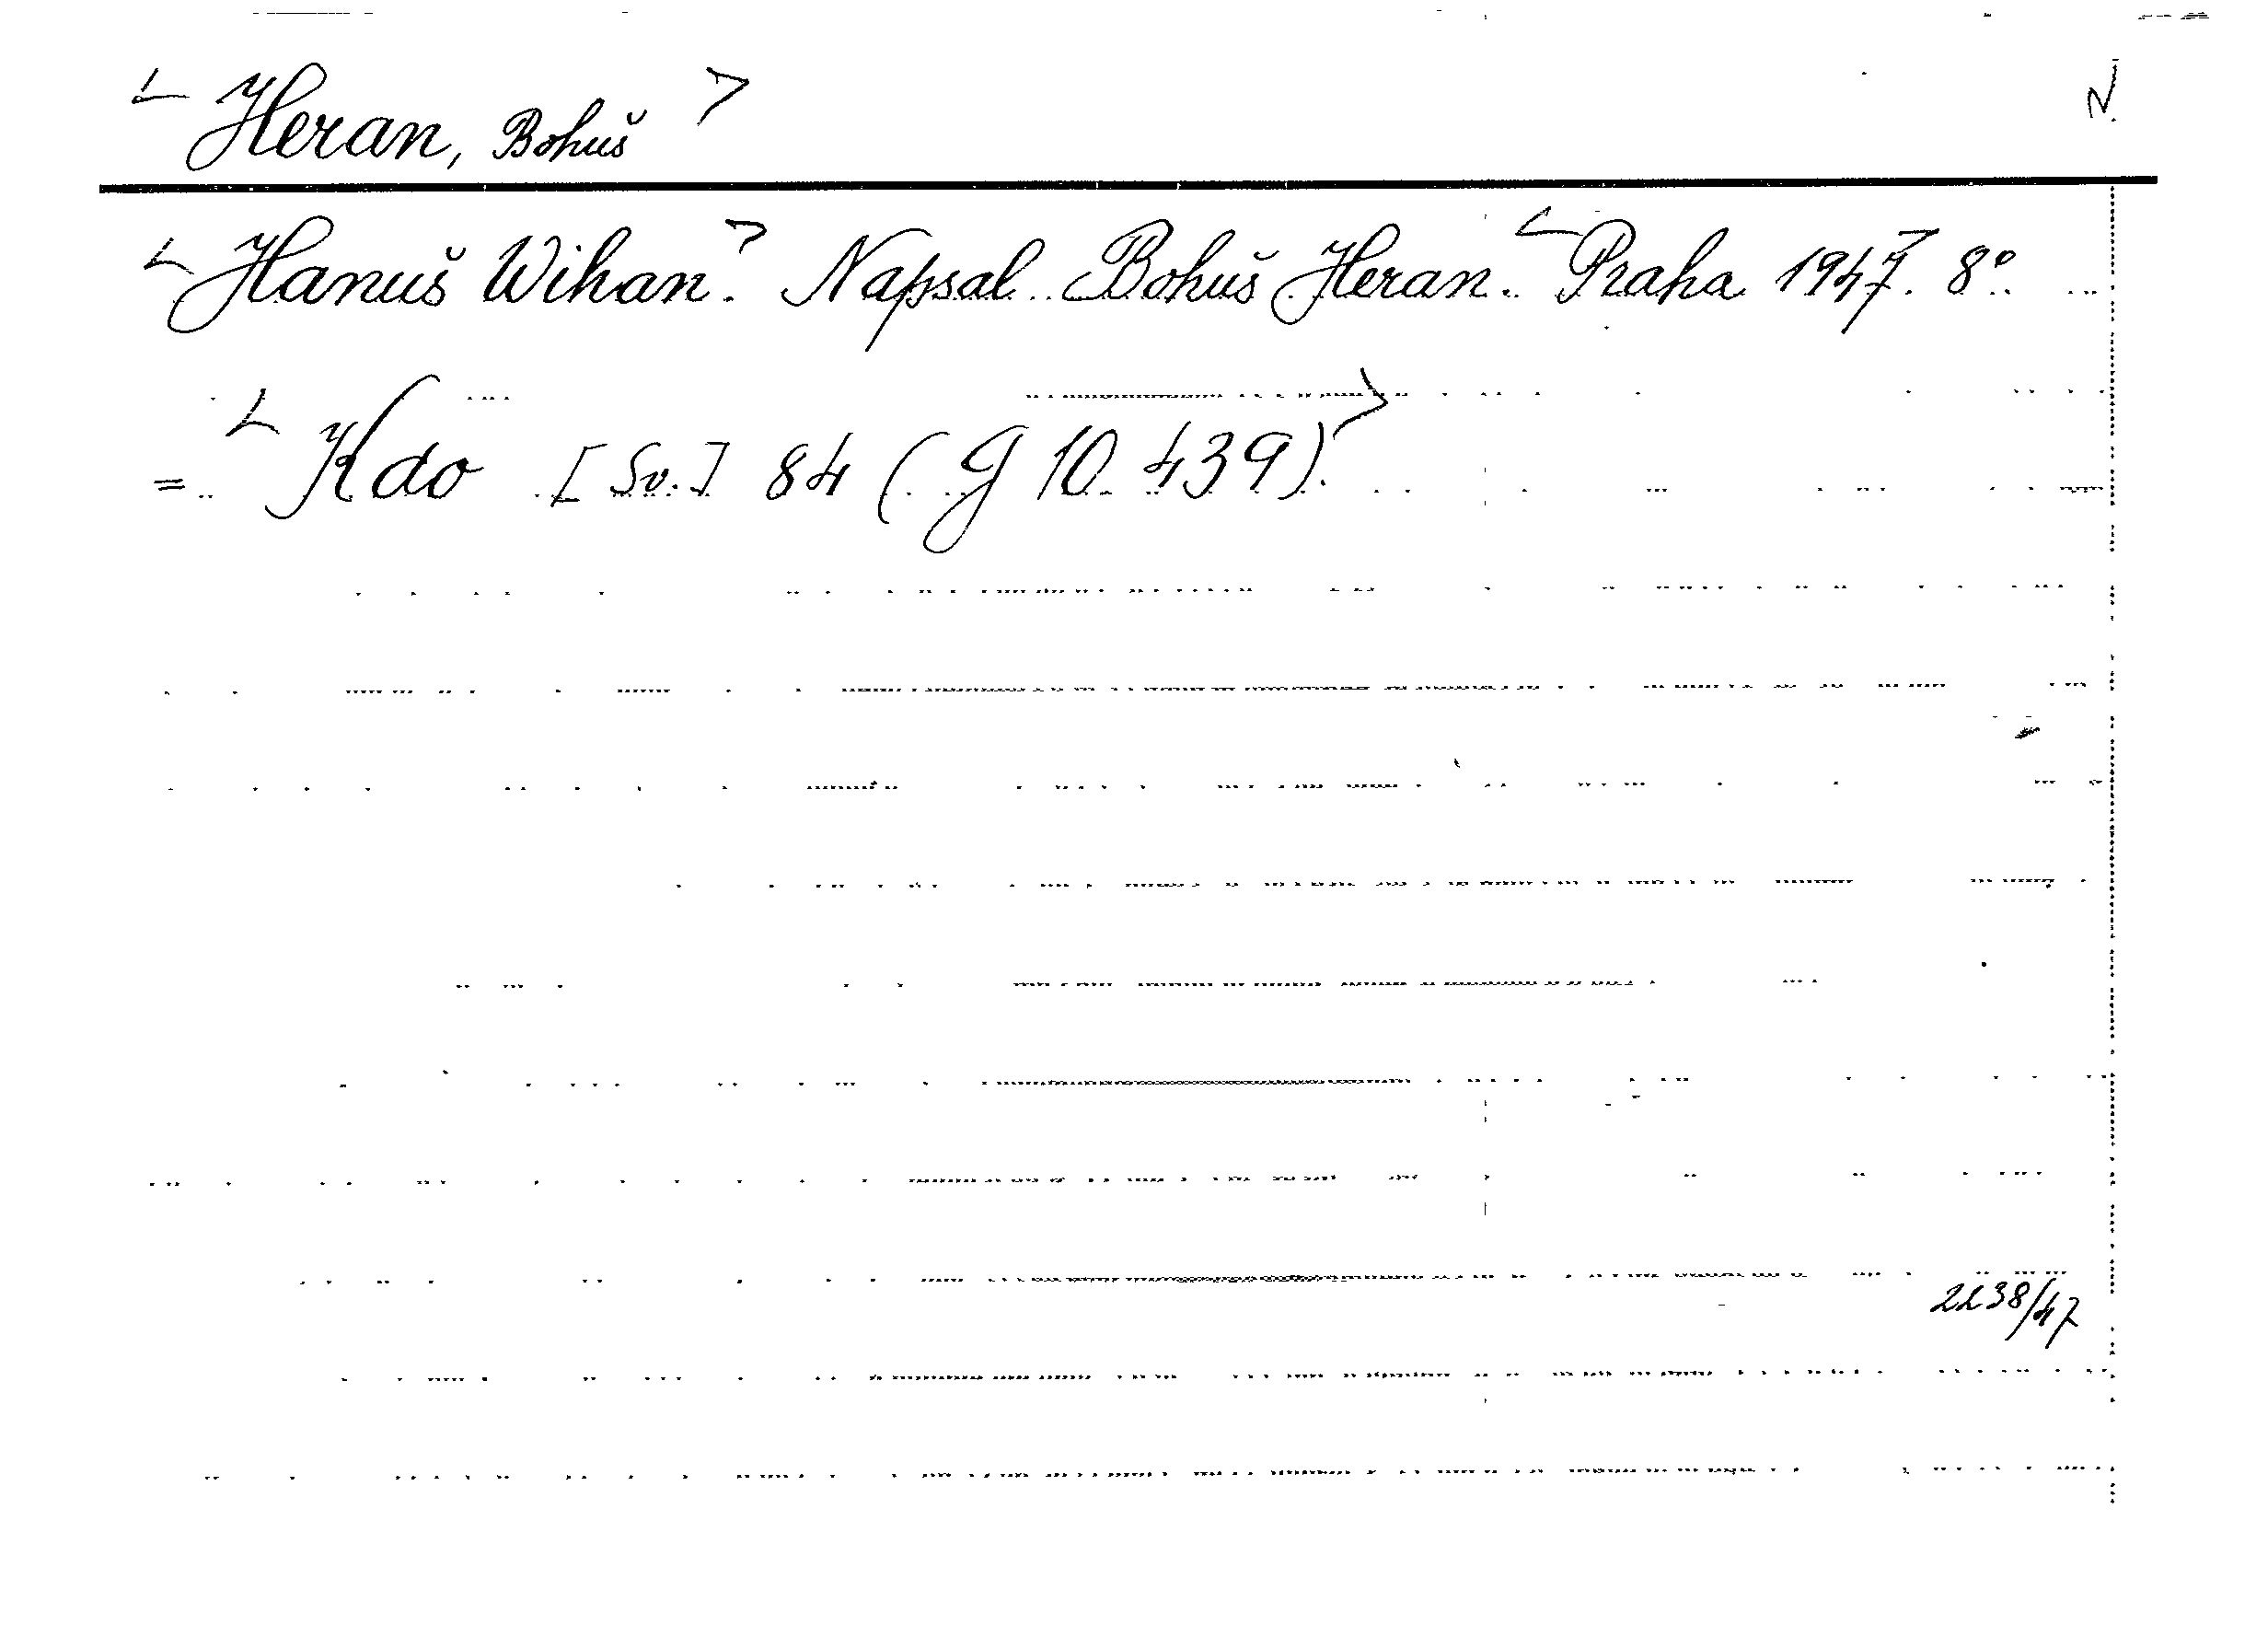 Heran, Bohuš
Hanuš Wihan. Napsal Bohuš Heran. Praha 1947. 8°.
= Kdo [Sv.] 84 (G 10.439).
2238/47